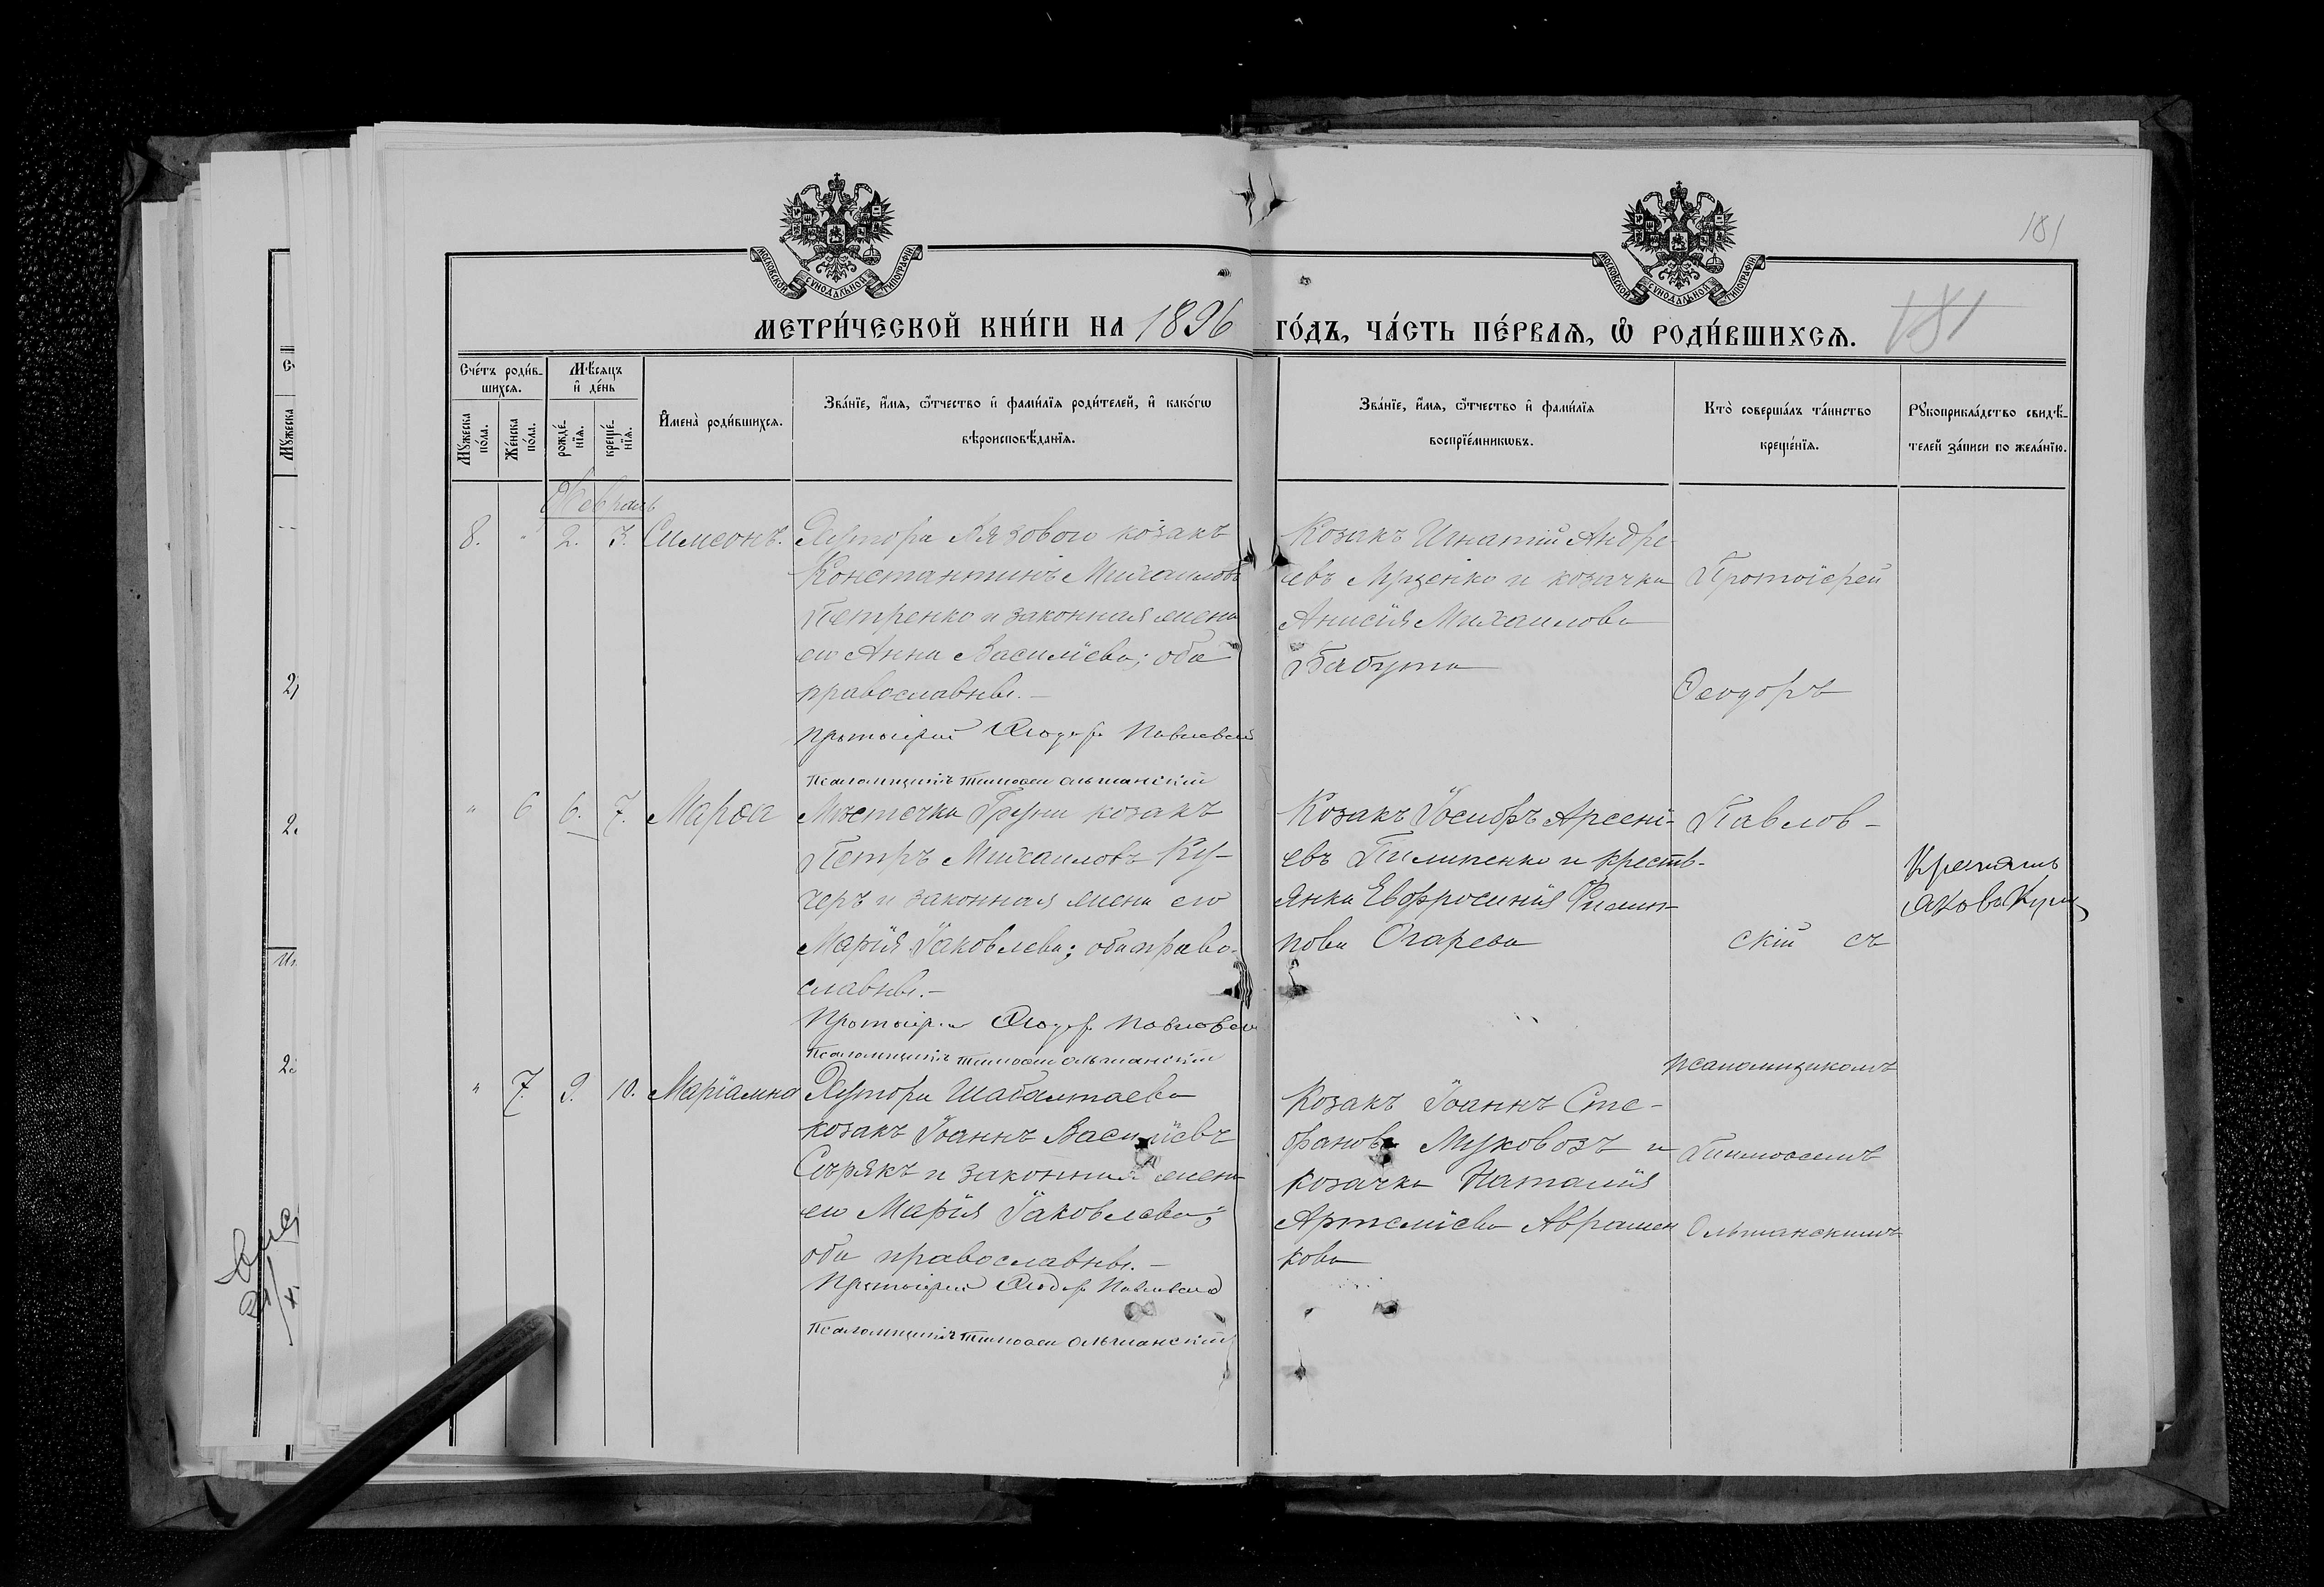 МОСКОВСКОЙ СѴНОДАЛЬНОЙ ТИПОГРАФІИ.
МОСКОВСКОЙ СѴНОДАЛЬНОЙ ТИПОГРАФІИ.
181
МЕТРИ́ЧЕСКОЙ КНИ́ГИ НА 1896 ГО́ДЪ, ЧА́СТЬ ПЕ́РВАѦ, Ѡ҆ РОДИ́ВШИХСѦ.
181
Сче́тъ роди́в-
шихсѧ.
Мѣ́сѧцъ
и҆ де́нь
Мꙋ́жеска
по́ла.
Же́нска
по́ла.
рожде́-
нїѧ.
креще́-
нїѧ.
И҆мена̀ роди́вшихсѧ.
Зва́нїе, и҆́мѧ, ѻ҆́тчество и҆ фами́лїѧ роди́телей, и҆ како́гѡ
вѣроисповѣ́данїѧ.
Зва́нїе, и҆́мѧ, ѻ҆́тчество и҆ фами́лїѧ
воспрїе́мникѡвъ.
Кто̀ соверша́лъ та́инство
креще́нїѧ.
Рꙋкоприкла́дство свидѣ́-
телей за́писи по жела́нїю.
Февраль
8. " 2. 3. Симеонъ.
Хутора козакъ
Константинъ Михаиловъ
Петренко и законная жена
его Анна Василіева; оба
православны.-
Протоіерей Ѳеодоръ Павловскій
Псаломщикъ Тимоѳей Ольшанскій
Козакъ Игнатій Андре-
евъ Луценко и козачка
Анисія Михаилова
Бабута
" 6 6. 7. Марѳа
Мѣстечка Груни козакъ
Петръ Михаиловъ Ку-
черъ и законная жена его
Марія Іаковлева; оба право-
славны.-
Протоіерей Ѳеодоръ Павловскій
Псаломщикъ Тимоѳей Ольшанскій
Козакъ Іосифъ Арсені-
евъ Пилипенко и кресть-
янка Евфросинія Филип-
пова Огарева
" 7. 9. 10. Маріамна
Хутора Шабалтаева
козакъ Іоаннъ Василіевъ
Сѣрякъ и законная жена
его Марія Іаковлева;
оба православны.-
Протоіерей Ѳеодоръ Павловскій
Псаломщикъ Тимоѳей Ольшанскій
Козакъ Іоаннъ Сте-
фановъ Муковозъ и
козачка Наталія
Артеміева Аврамен
кова
Протоіерей
Ѳеодоръ
Павлов-
скій съ
псаломщикомъ
Тимоѳеемъ
Ольшанскимъ